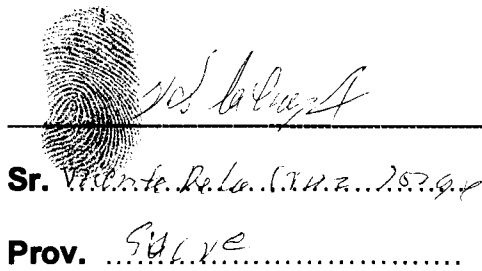 Sr. Vicente De La Cruz Jorge
Prov. Sucre